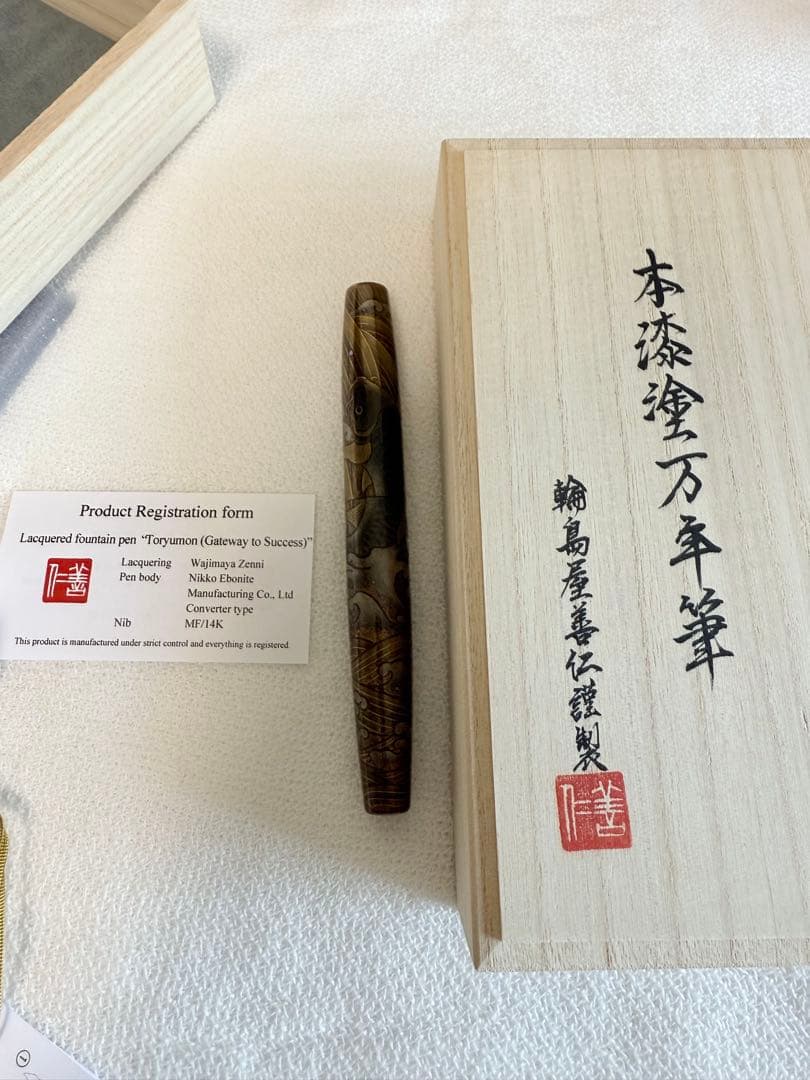 Product Registration form
Lacquered fountain pen “Toryumon (Gateway to Success)”
Lacquering Wajimaya Zenni
Pen body Nikko Ebonite
Manufacturing Co., Ltd
Converter type
Nib MF/14K
This product is manufactured under strict control and everything is registered
善仁
本漆塗万年筆
輪島屋善仁謹製
善仁
①